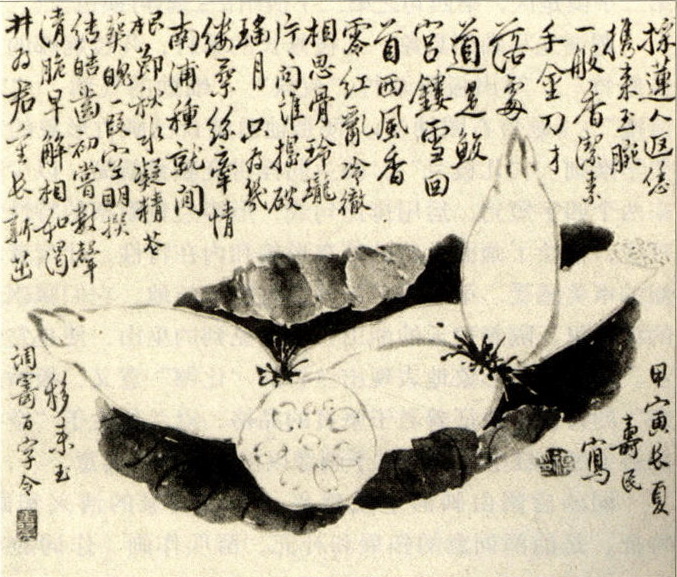 採蓮人返儘
攜來玉腕
一般香潔素
手金刀才
落處
道是鮫
宮鏤雪回
首西風香
零紅亂冷徹
相思骨玲瓏
片片向誰擺破
瑤月只為幾
縷柔絲牽情
南浦種就閒
根節秋水凝精花
葬魄一段空明撰
結皓齒初嘗數聲
清脆早解相如渴
移來玉
井為君重長新茁
調寄百字令
甲寅長夏
壽民
寫